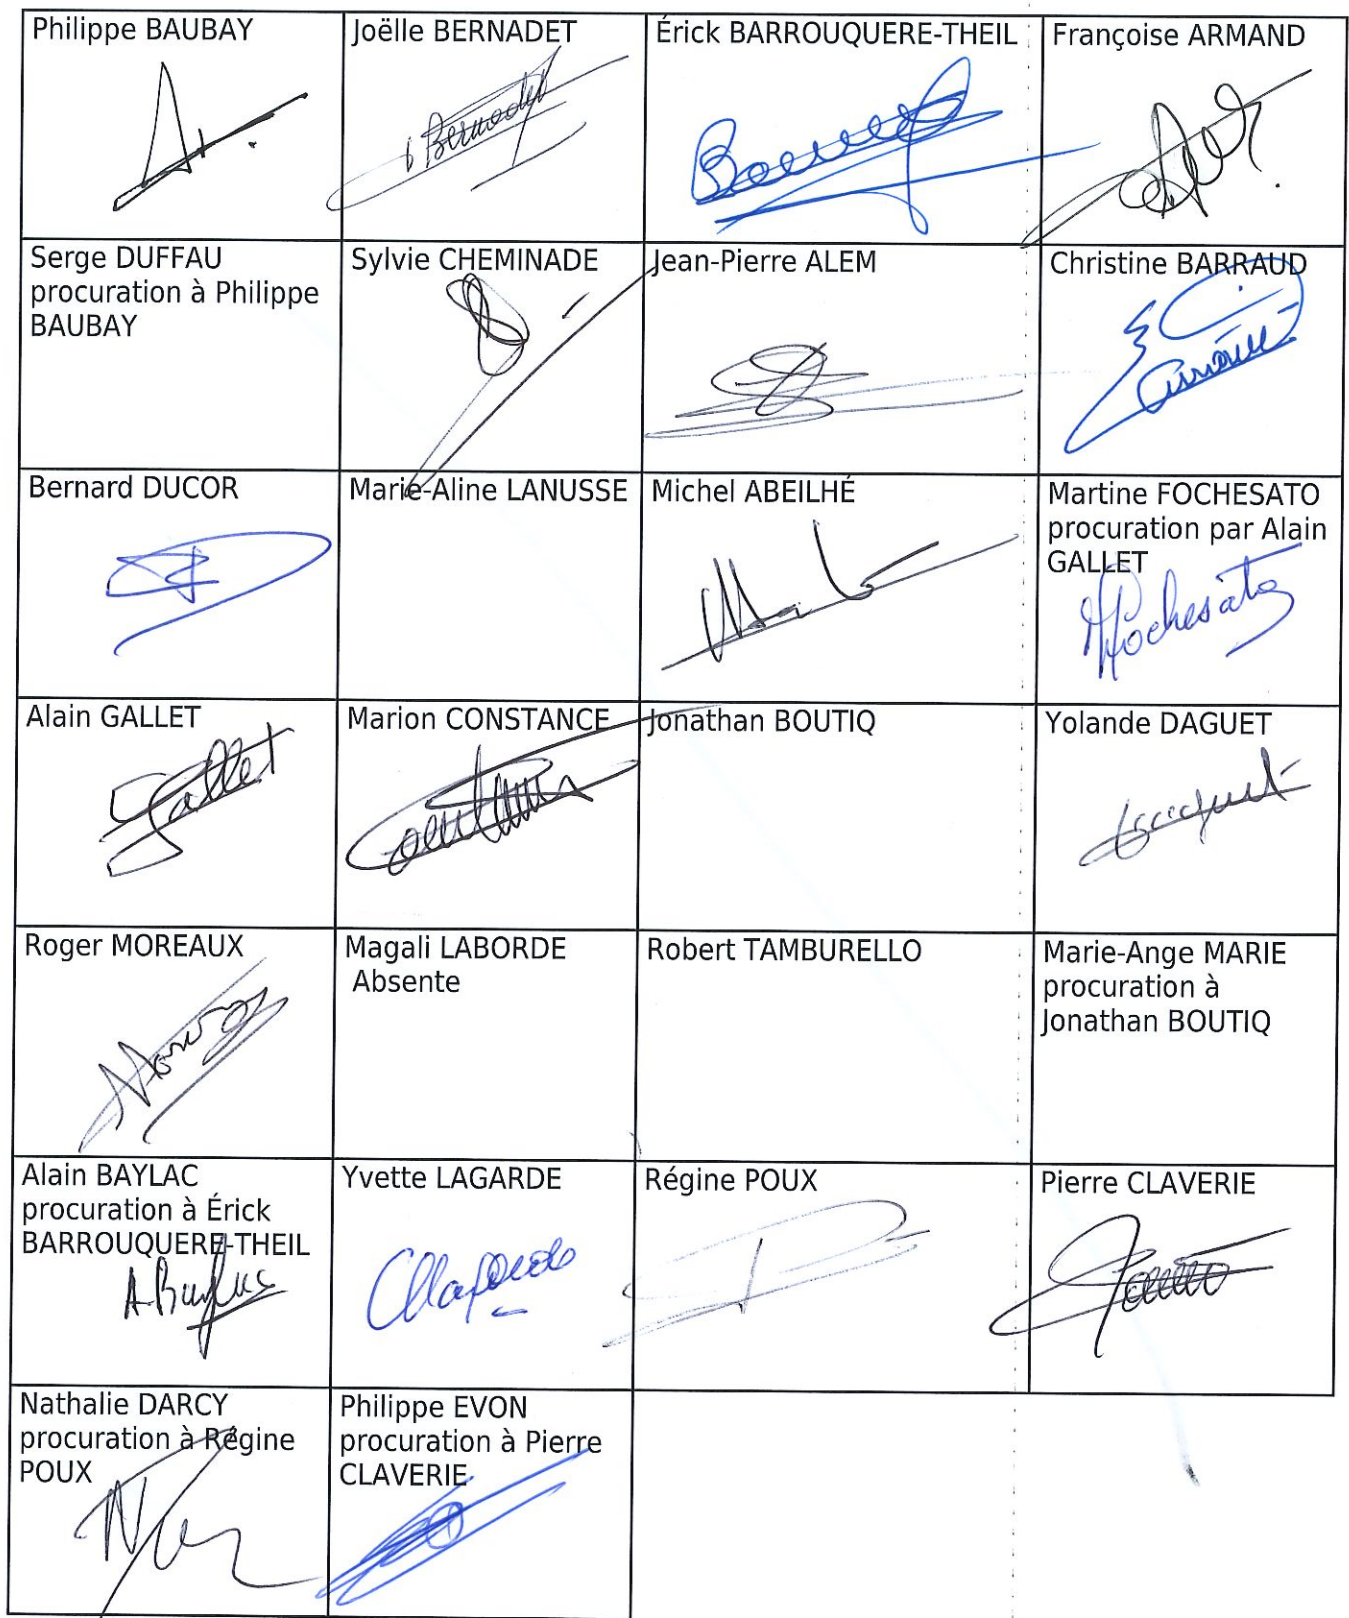 Philippe BAUBAY
Joëlle BERNADET
Érick BARROUQUERE-THEIL
Françoise ARMAND
Bernadet
Serge DUFFAU
procuration à Philippe
BAUBAY
Sylvie CHEMINADE
Jean-Pierre ALEM
Christine BARRAUD
Bernard DUCOR
Marie-Aline LANUSSE
Michel ABEILHÉ
Martine FOCHESATO
procuration par Alain
GALLET
MFochesato
Alain GALLET
Marion CONSTANCE
Jonathan BOUTIQ
Yolande DAGUET
Gallet
Roger MOREAUX
Magali LABORDE
Absente
Robert TAMBURELLO
Marie-Ange MARIE
procuration à
Jonathan BOUTIQ
Alain BAYLAC
procuration à Érick
BARROUQUERE-THEIL
A Baylac
Yvette LAGARDE
Régine POUX
Pierre CLAVERIE
Nathalie DARCY
procuration à Régine
POUX
Philippe EVON
procuration à Pierre
CLAVERIE